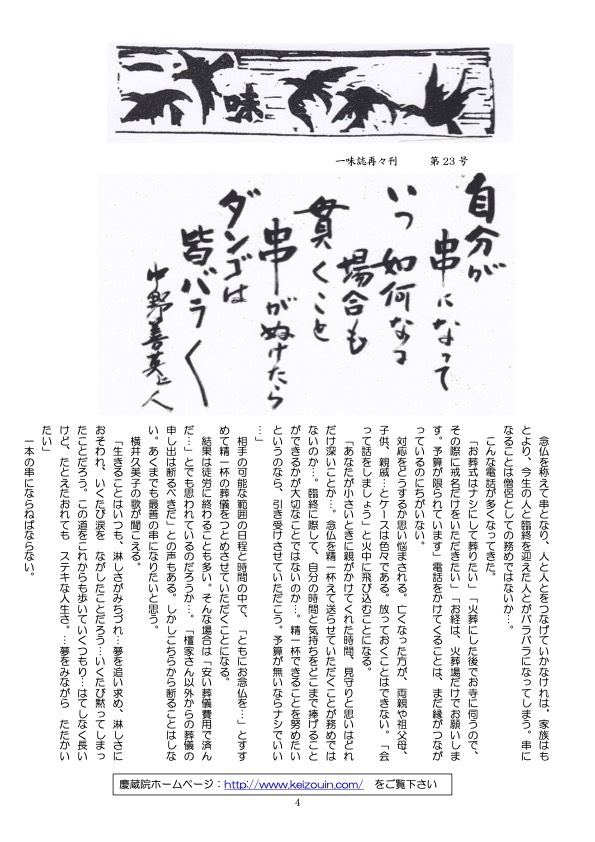 一味
一味誌再々刊　第23号
自分が
串になって
いつ如何なる
場合も
貫くこと
串がぬけたら
ダンゴは
皆バラく
中野善英上人
念仏を称えて串となり、人と人とをつなげていかなければ、家族はも
とより、今生の人と臨終を迎えた人とがバラバラになってしまう。串に
なることは僧侶としての務めではないか…。
こんな電話が多くなってきた。
「お葬式はナシにして葬りたい」「火葬にした後でお寺に伺うので、
その際に戒名だけをいただきたい」「お経は、火葬場だけでお願いしま
す。予算が限られています」電話をかけてくることは、まだ縁がつなが
っているのにちがいない。
対応をどうするか思い悩まされる。亡くなった方が、両親や祖父母、
子供、親戚…とケースは色々である。放っておくことはできない。「会
って話をしましょう」と火中に飛び込むことになる。
「あなたが小さいときに親がかけてくれた時間、見守りと思いはどれ
だけ深いことか…。念仏を精一杯称えて送らせていただくことが務めでは
ないのか…。臨終に際して、自分の時間と気持ちをどこまで捧げること
ができるかが大切なことではないのか…。精一杯できることを努めたい
というのなら、引き受けさせていただこう。予算が無いならナシでいい
…」
相手の可能な範囲の日程と時間の中で、「ともにお念仏を…」とすす
めて精一杯の葬儀をつとめさせていただくことになる。
結果は徒労に終わることも多い。そんな場合は「安い葬儀費用で済ん
だ…」とでも思われているのだろうか…。「檀家さん以外からの葬儀の
申し出は断るべきだ」との声もある。しかしこちらから断ることはしな
い。あくまでも最善の串になりたいと思う。
横井久美子の歌が聞こえる。
「生きることはいつも、淋しさがみちづれ…夢を追い求め、淋しさに
おそわれ、いくたび涙を　ながしたことだろう…いくたび黙ってしまっ
たことだろう。この道をこれからも歩いていくつもり…はてしなく長い
けど、たとえたおれても　ステキな人生さ。…夢をみながら　たたかい
たい」
一本の串にならねばならない。
慶蔵院ホームページ：http://www.keizouin.com/　をご覧下さい
4